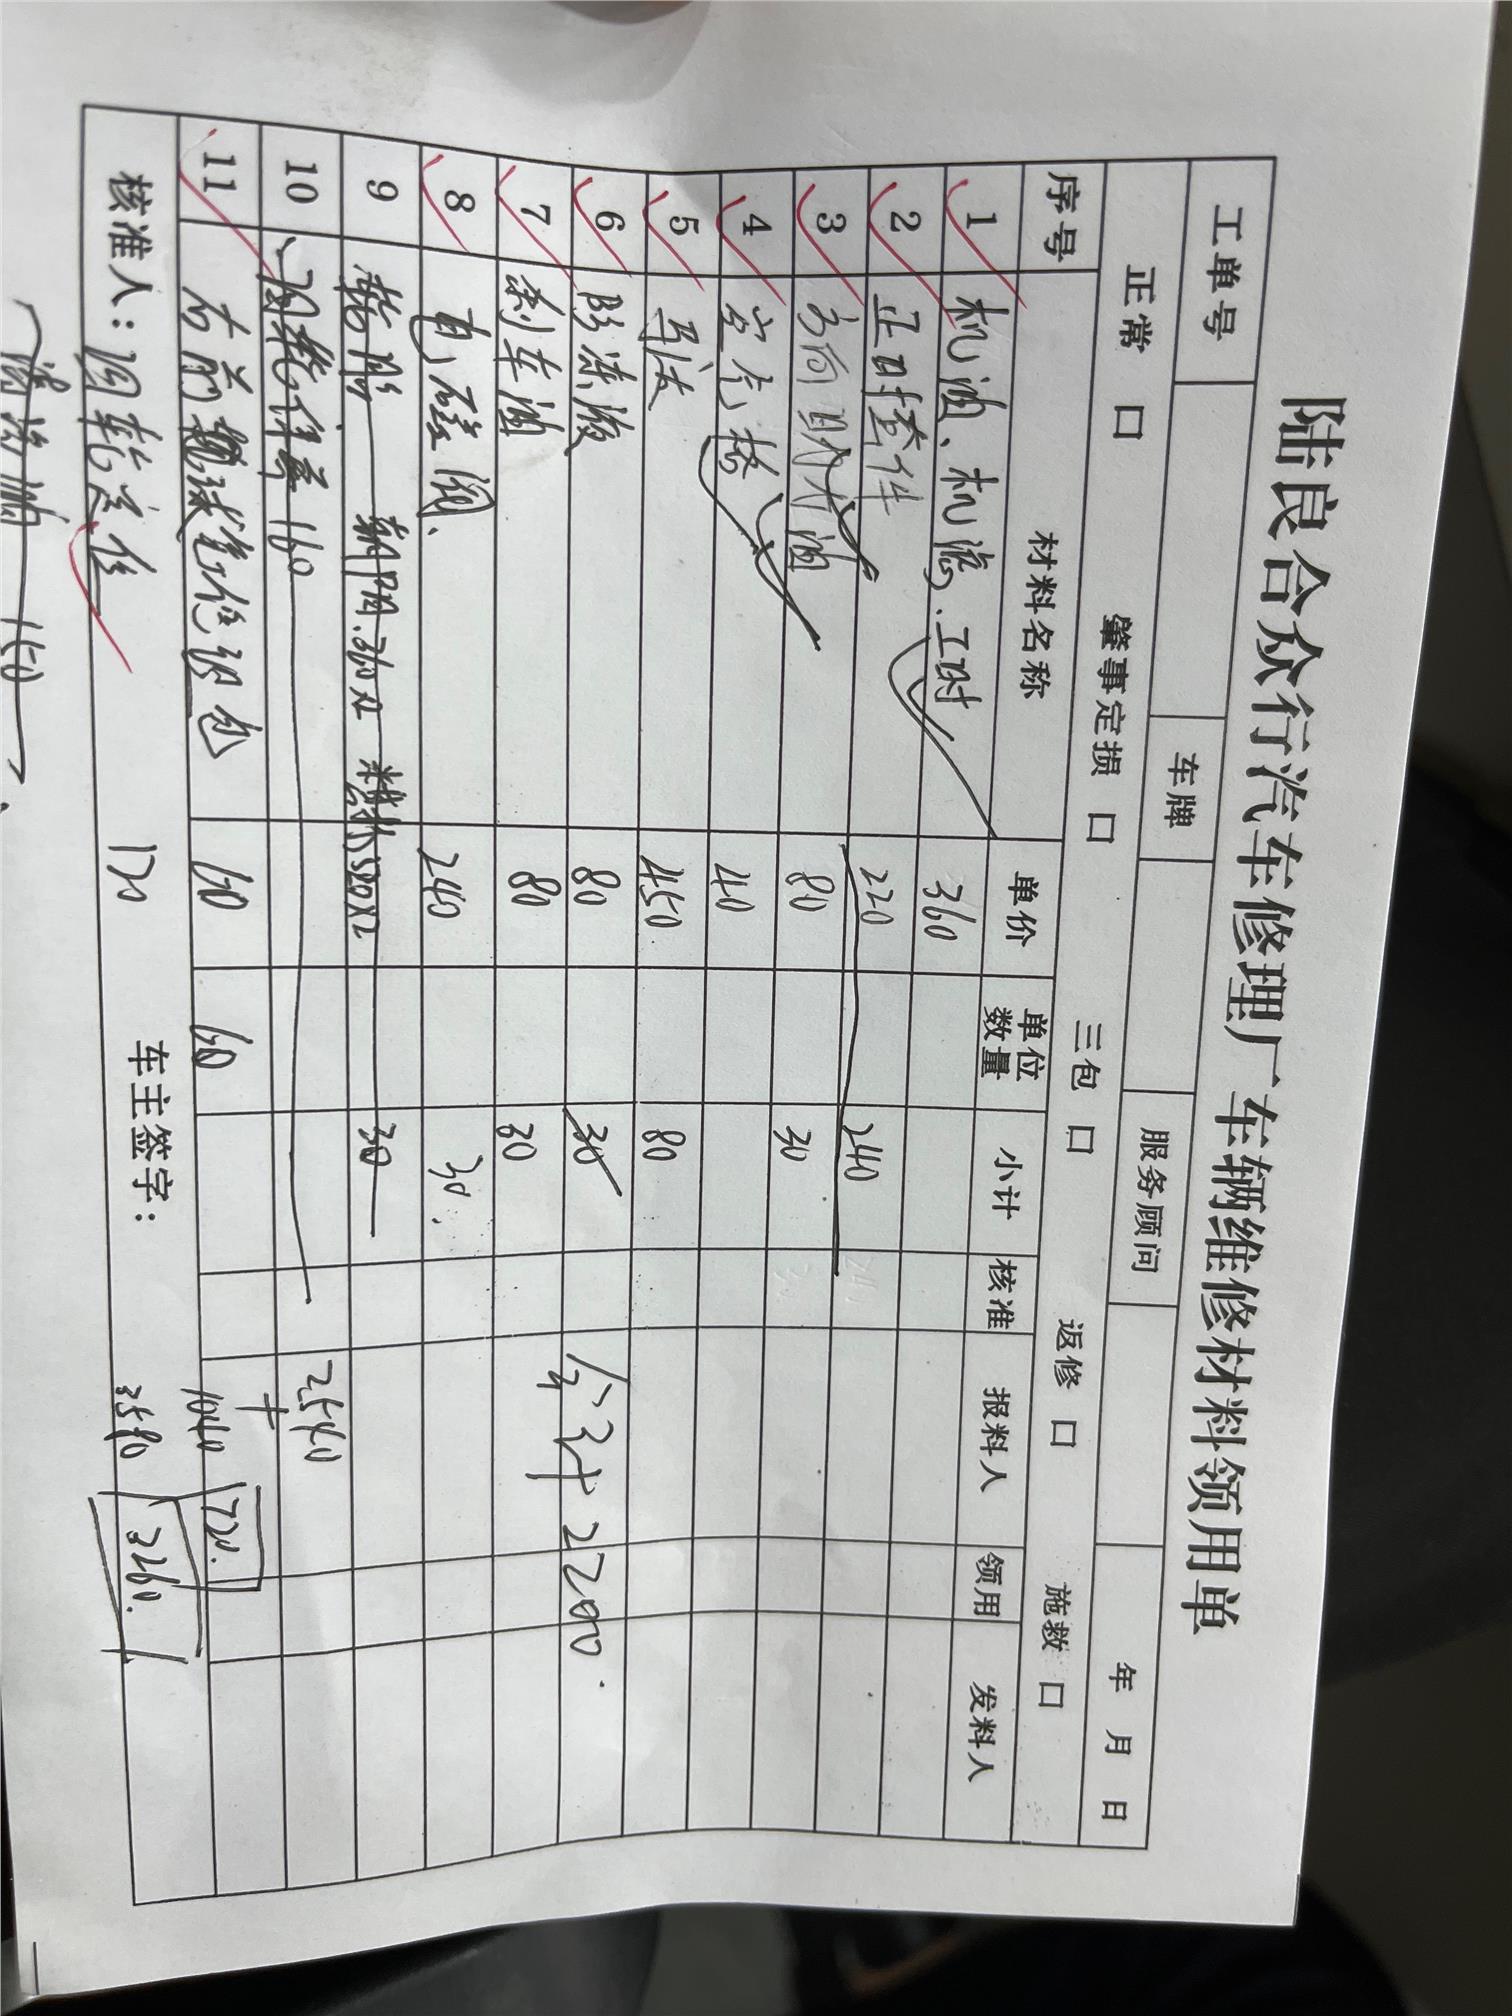 陆良合众行汽车修理厂车辆维修材料领用单
工单号 车牌 服务顾问 年 月 日
正常 口 肇事定损 口 三包 口 返修 口 施救 口
序号 材料名称 单价 单位数量 小计 核准 报料人 领用 发料人
1 机油、机滤.工时 360
2 正时套件 220 240
3 方向助力油 80 30
4 空气格 40
5 450 80
6 防冻液 80 30 合计2200.
7 刹车油 80 30
8 电磁阀. 240 30.
9 轮胎 朝阳.360x2 580x2 30
10 160 2540
+
11 右前 球笔修包 60 60 1040 720.
核准人: 四轮定位 120 车主签字: 3580 3260.
150